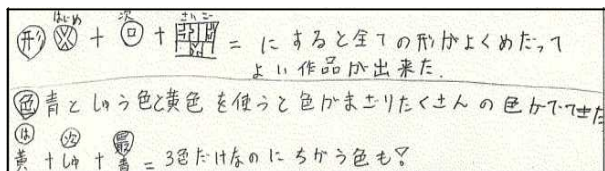 はじめ 次 さいご
形 + + = にすると全ての形がよくめだって
よい作品が出来た.
色 青としゅう色と黄色を使うと色がまざりたくさんの色がでてきた
は 次 最
黄 + しゅ + 青 = 3色だけなのにちがう色も!